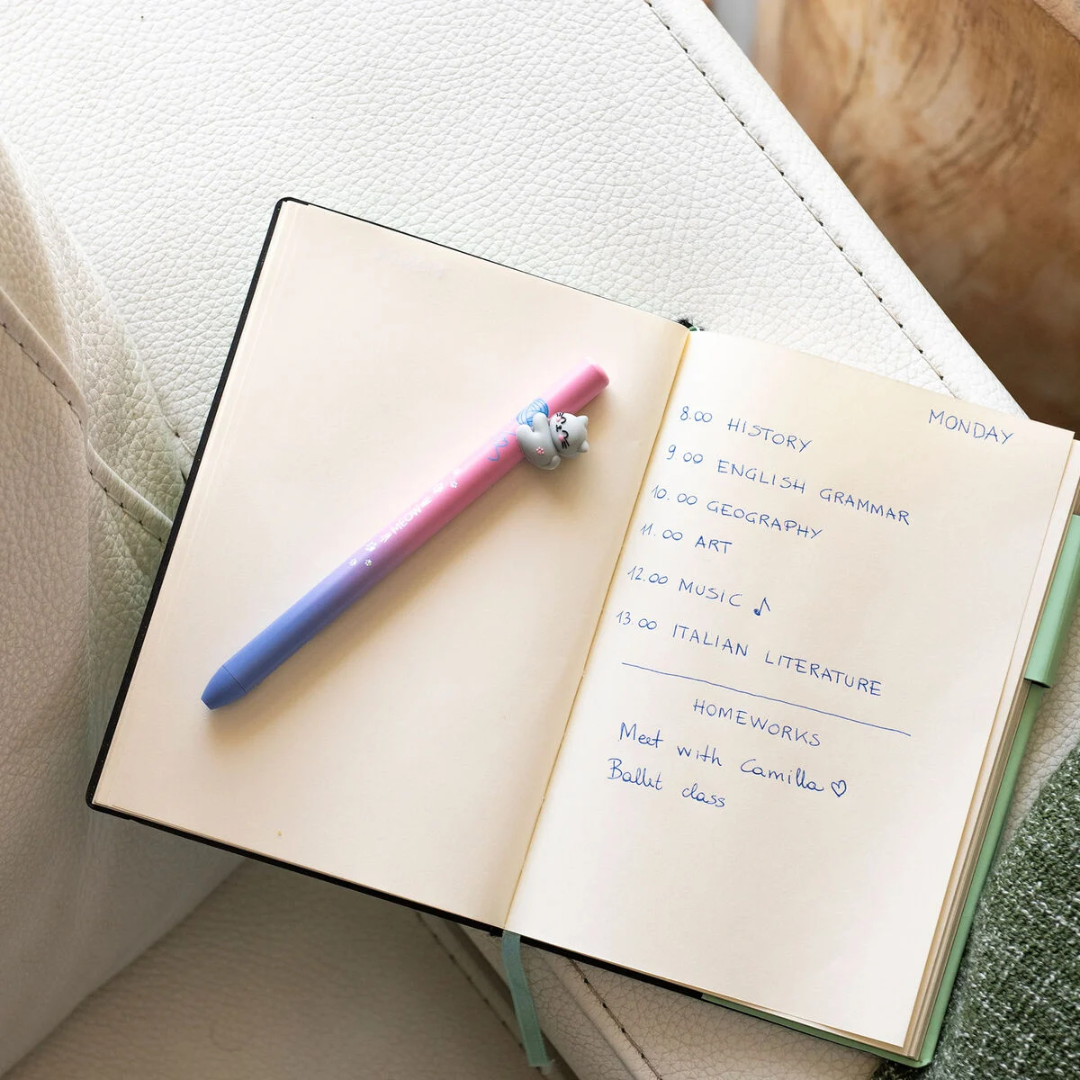 MONDAY
8.00 HISTORY
9.00 ENGLISH GRAMMAR
10.00 GEOGRAPHY
11.00 ART
12.00 MUSIC ♪
13.00 ITALIAN LITERATURE
HOMEWORKS
Meet with Camilla ♡
Ballet class
MEOW